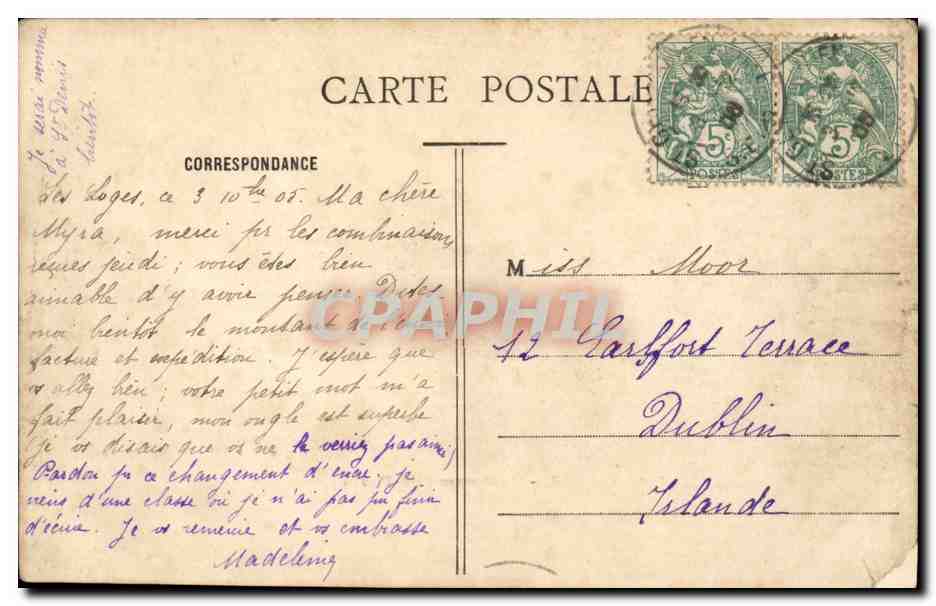 Je serai nommée
à St Denis
bientôt.
CARTE POSTALE
5c 5c
POSTES POSTES
CORRESPONDANCE
Les Loges, ce 3 10bre 05. Ma chère
Myra, merci pr les combinaisons
reçues jeudi ; vous êtes bien
aimable d'y avoir penser. Dites
moi bientôt le montant de
facture et expédition. J'espère que
vs allez bien ; votre petit mot m'a
fait plaisir, mon ongle est superbe
je vs disais que vs ne le verriez pas ainsi,
Pardon pr ce changement d'encre, je
viens d'une classe où je n'ai pas pu finir
d'écrire. Je vs remercie et vs embrasse
Madeleine
Miss Moor
12 Earlsfort Terrace
Dublin
Irlande
CPAPHIL